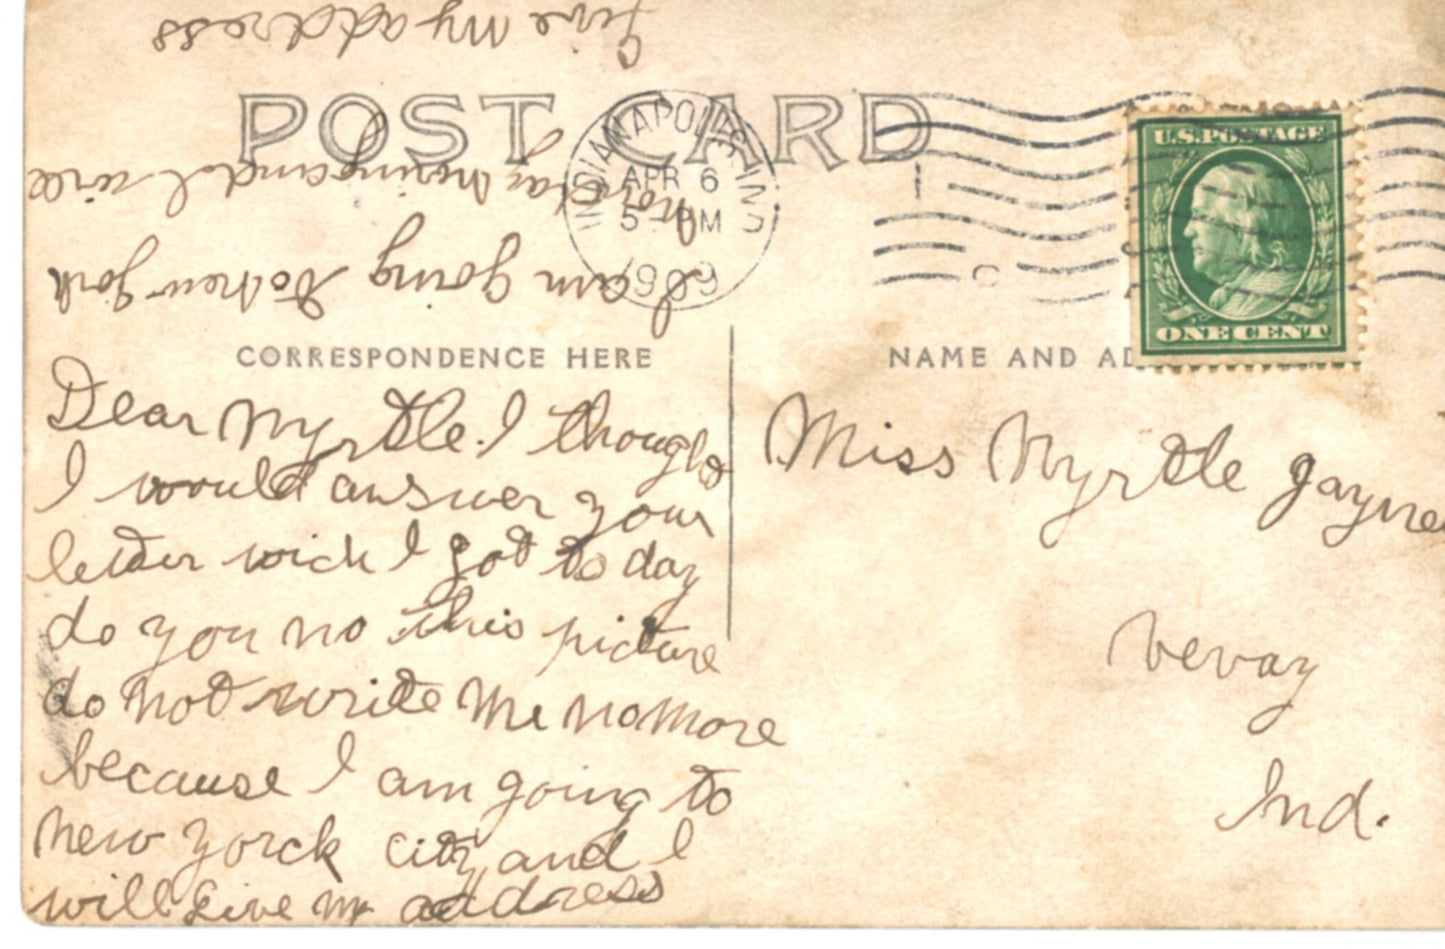 POST CARD
INDIANAPOLIS IND
APR 6
5 - PM
1909
U.S. POSTAGE
ONE CENT
CORRESPONDENCE HERE
NAME AND AD
Dear Myrtle. I thought
I would answer your
letter wich I got to day
do you no this picture
do not write me no more
because I am going to
new yorck city and I
will give my address
I am going to new york
morning and I will
Give my address
Miss Myrtle Gayne
Vevay
Ind.